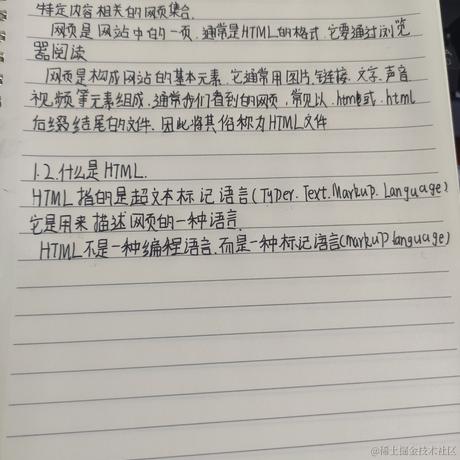 特定内容相关的网页集合.
网页是网站中的一页.通常是HTML的格式.它要通过浏览
器阅读
网页是构成网站的基本元素.它通常用图片.链接.文字.声音
视频等元素组成.通常我们看到的网页,常见以.htme或.html
后缀结尾的文件.因此将其俗称为HTML文件
1.2.什么是HTML.
HTML指的是超文本标记语言(Tyder.Text.Markup.Language)
它是用来描述网页的一种语言.
HTML不是一种编程语言.而是一种标记语言(markup language)
@稀土掘金技术社区